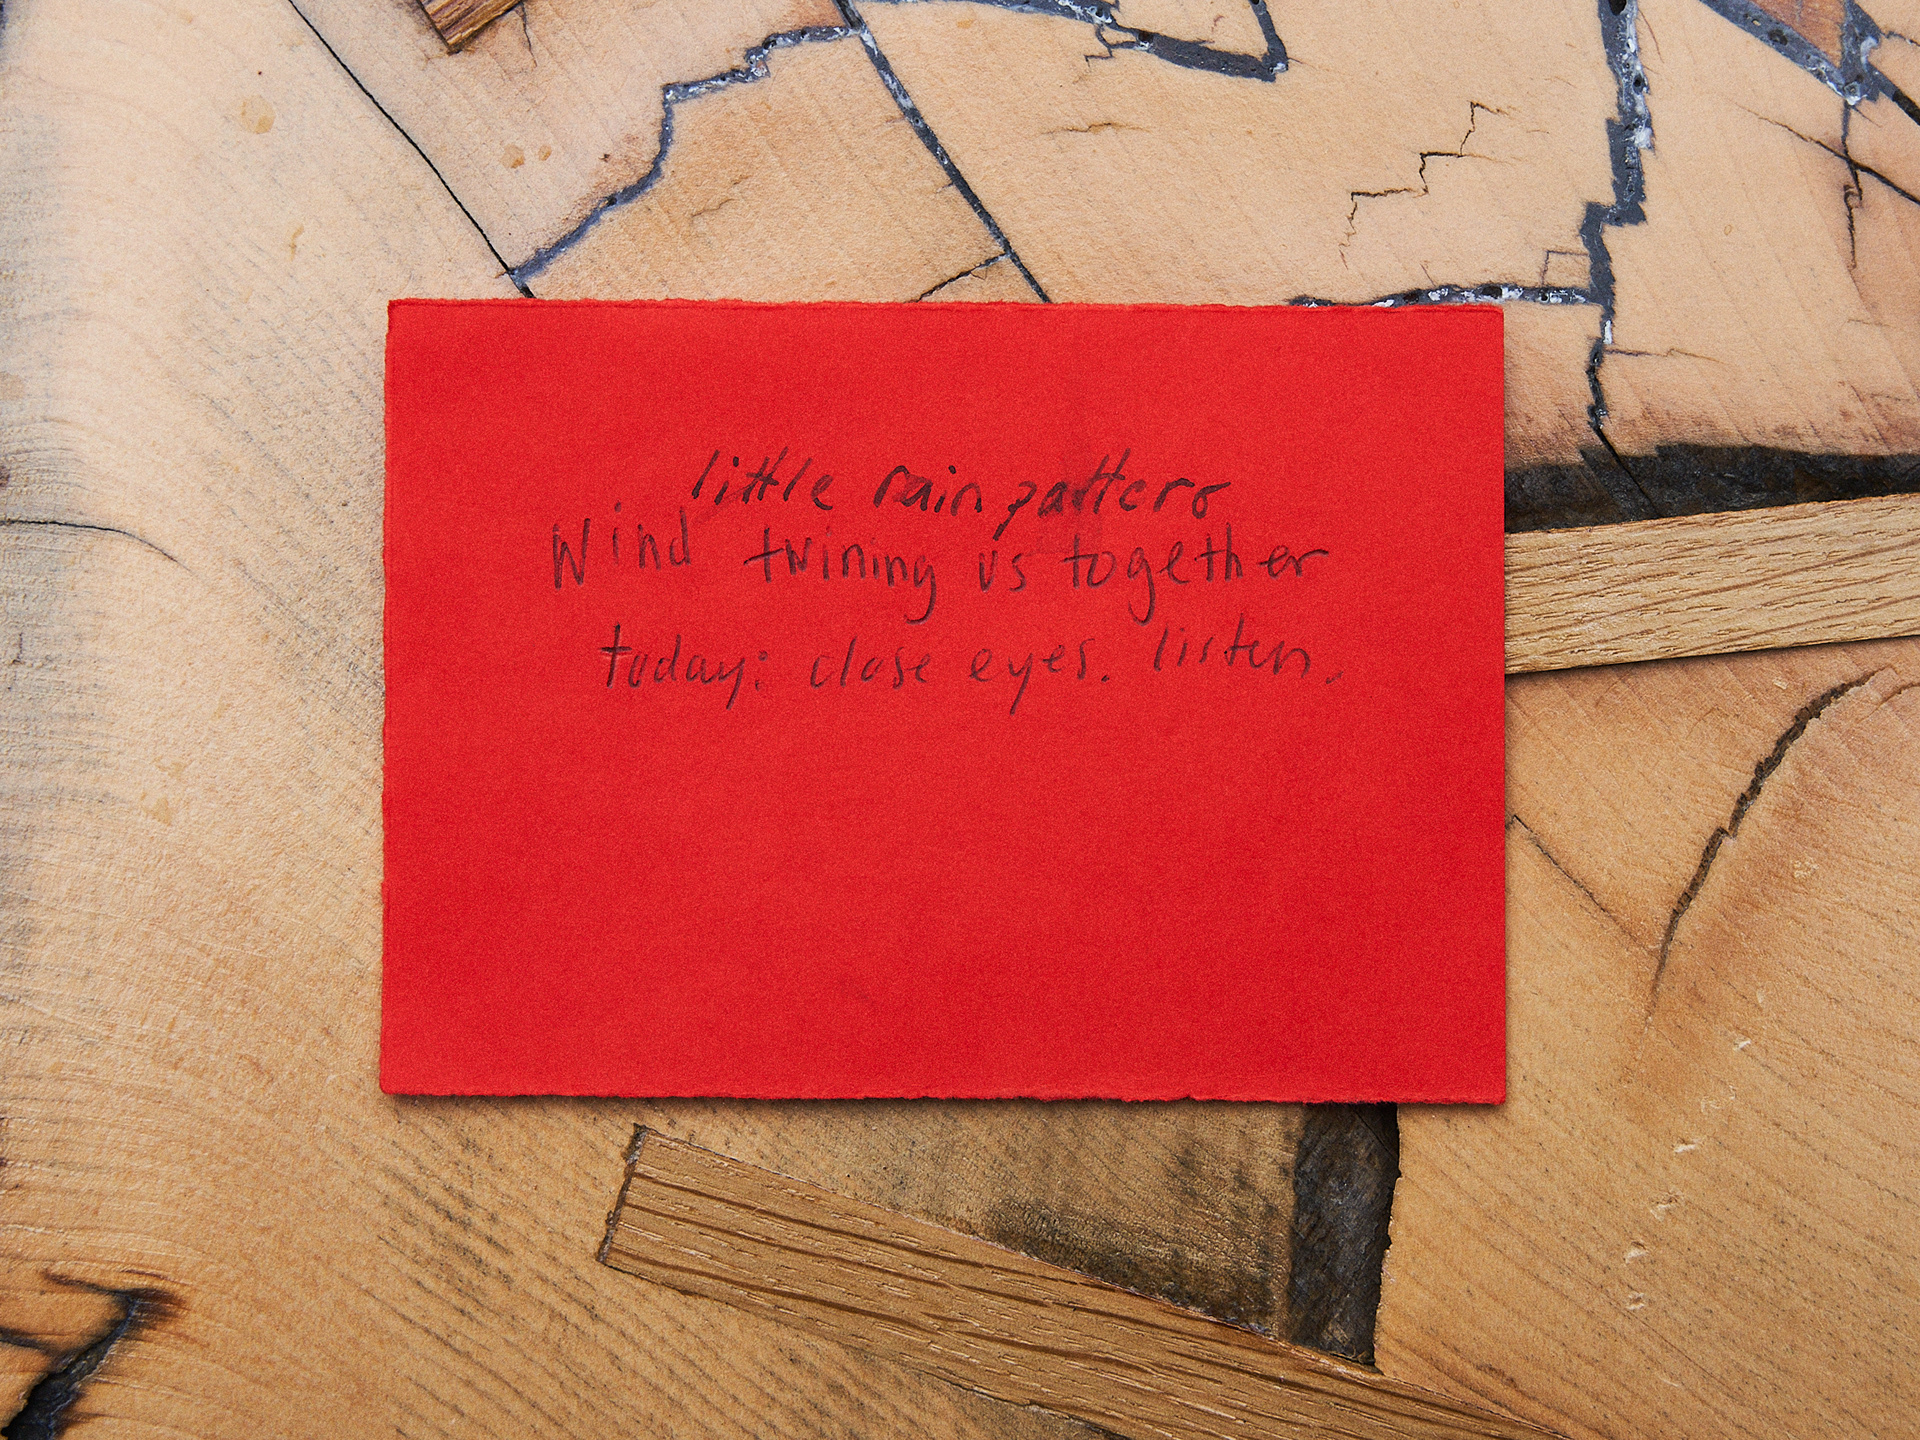 little rain patters
Wind twining us together
today: close eyes. listen.